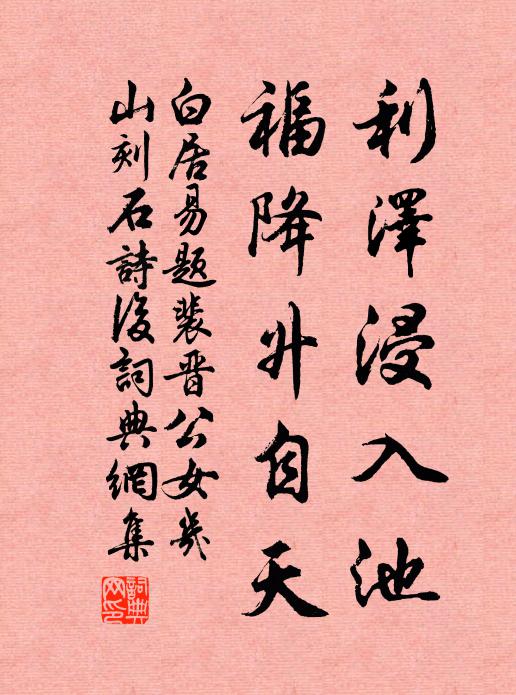 利澤浸入池
福降升自天
白居易題裴晋公女几
山刻石詩後詞典網集
詞典
网印